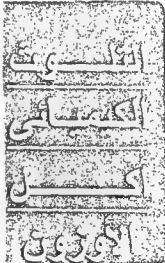 التلوث
الكيميائي
أكل
الأوزون